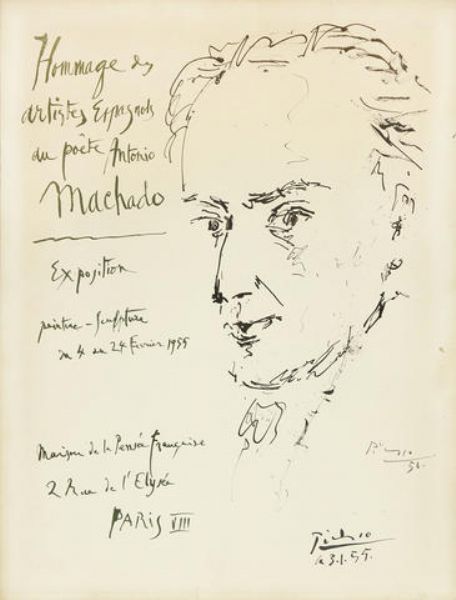 Hommage des
artistes Espagnols
au poète Antonio
Machado
Exposition
peinture - sculpture
du 4 au 24 février 1955
Maison de la Pensée Française
2 Rue de l'Elysée
PARIS VIII
Picasso
55.
Picasso
le 3.1.55.